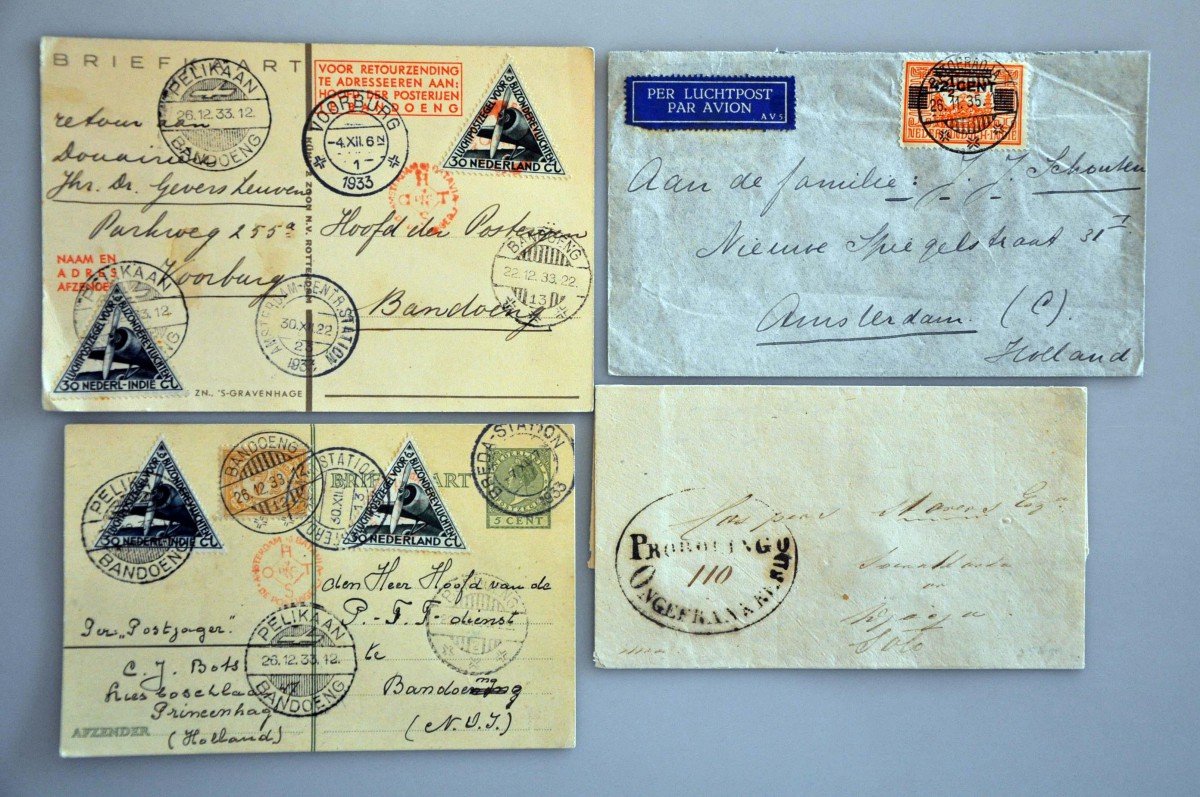 BRIEFKAART
VOOR RETOURZENDING
TE ADRESSEEREN AAN:
HOOFD DER POSTERIJEN
BANDOENG
PELIKAAN
26.12.33.12.
BANDOENG
VOORBURG
-4.XII.6
1-
1933
LUCHTPOSTZEGEL VOOR BIJZONDERE VLUCHTEN
30 NEDERLAND CT
retour aan
Douairière
Jhr. Dr. Gevers Leuven
Parkweg 255a
Voorburg
Hoofd der Posterijen
Bandoeng
NAAM EN
ADRES
AFZENDER
BANDOENG
22.12.33.22.
13
AMSTERDAM-CENTR. STATION
30.XII.22
1933
PELIKAAN
BANDOENG
LUCHTPOSTZEGEL VOOR BIJZONDERE VLUCHTEN
30 NEDERL-INDIE CT
ZN., 'S-GRAVENHAGE
PER LUCHTPOST
PAR AVION
AV5
42½ CENT
26.11.35
Aan de familie: J. J. Schouten
Nieuwe Spiegelstraat 31 I
Amsterdam (C).
Holland
BRIEFKAART
BANDOENG
26.12.33.12
STATION
30.XII
BREDA-STATION
1933
5 CENT
LUCHTPOSTZEGEL VOOR BIJZONDERE VLUCHTEN
30 NEDERL-INDIE CT
LUCHTPOSTZEGEL VOOR BIJZONDERE VLUCHTEN
30 NEDERLAND CT
PELIKAAN
BANDOENG
den Heer Hoofd van de
P.-T.T-dienst
te
Bandoeng
(N.O.I.)
Per "Postjager".
PELIKAAN
26.12.33.12.
BANDOENG
C. J. Bots
Princenhage
(Holland)
AFZENDER
PROBOLINGO
110
ONGEFRANKEERD
Solo